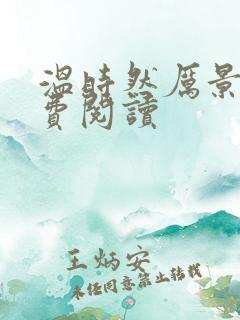 温时然厲景
費閱讀
王炳安
未经同意禁止转载